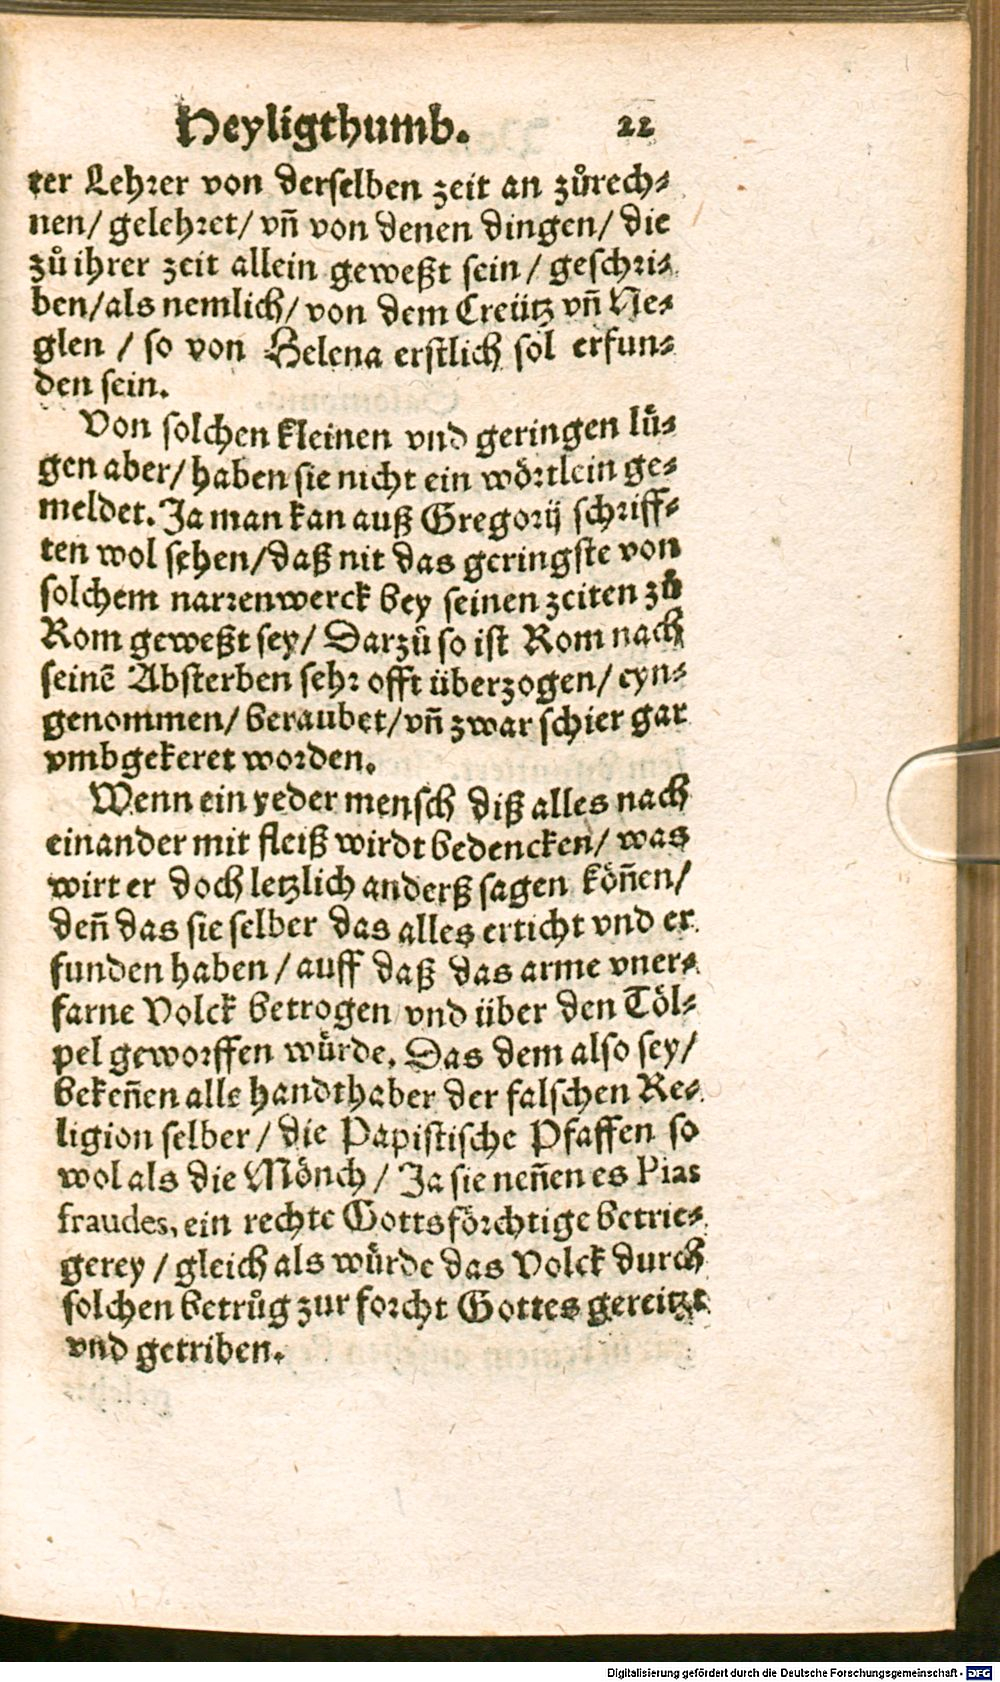 Heyligthumb. 22
ter Lehrer von derselben zeit an zůrech-
nen/ gelehret/ vñ von denen dingen/ die
zů ihrer zeit allein geweßt sein/ geschri-
ben/ als nemlich/ von dem Creütz vñ Ne-
glen / so von Helena erstlich sol erfun-
den sein.
Von solchen kleinen vnd geringen lü-
gen aber/ haben sie nicht ein wörtlein ge-
meldet. Ja man kan auß Gregorij schriff-
ten wol sehen/ daß nit das geringste von
solchem narrenwerck bey seinen zeiten zů
Rom geweßt sey/ Darzů so ist Rom nach
seinē Absterben sehr offt überzogen/ eyn-
genommen/ beraubet/ vñ zwar schier gar
vmbgekeret worden.
Wenn ein yeder mensch diß alles nach
einander mit fleiß wirdt bedencken/ was
wirt er doch letzlich anderß sagen köñen/
deñ das sie selber das alles erticht vnd er
funden haben / auff daß das arme vner-
farne Volck betrogen vnd über den Töl-
pel geworffen würde. Das dem also sey/
bekeñen alle handthaber der falschen Re-
ligion selber / die Papistische Pfaffen so
wol als die Mönch / Ja sie neñen es Pias
fraudes, ein rechte Gottsförchtige betrie-
gerey / gleich als würde das Volck durch
solchen betrůg zur forcht Gottes gereitzt
vnd getriben.
Digitalisierung gefördert durch die Deutsche Forschungsgemeinschaft - DFG